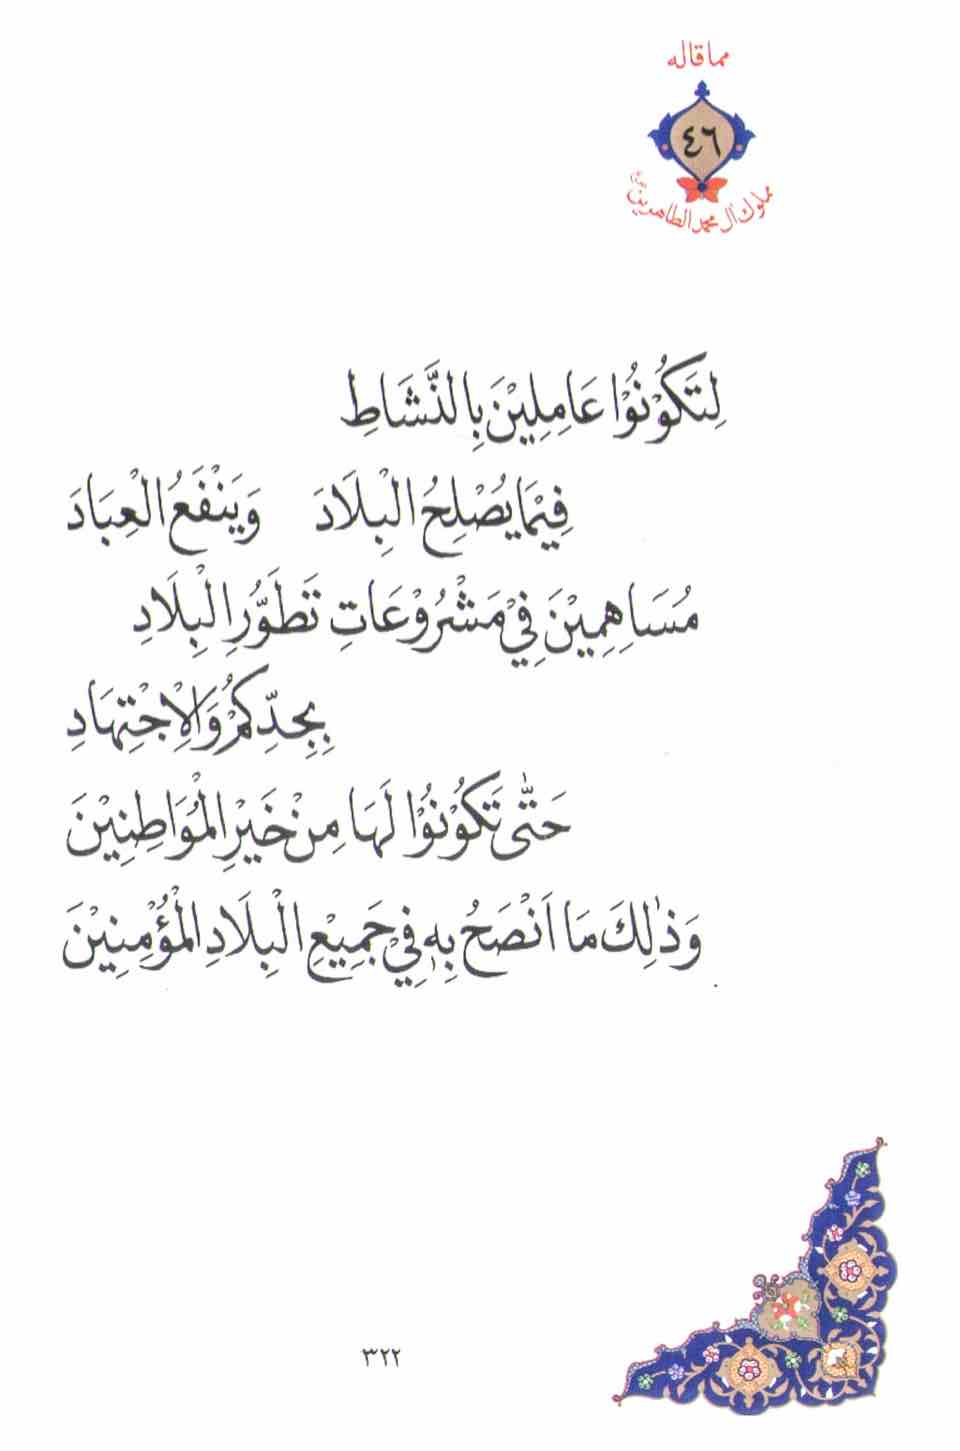 مما قاله
٤٦
مملوك آل محمد الطاهرين
لِتَكُوْنُوْا عَامِلِيْنَ بِالنَّشَاطِ
فِيْمَا يُصْلِحُ الْبِلَادَ وَيَنْفَعُ الْعِبَادَ
مُسَاهِمِيْنَ فِيْ مَشْرُوْعَاتِ تَطَوُّرِ الْبِلَادِ
بِجِدِّكُمْ وَالْاِجْتِهَادِ
حَتّٰى تَكُوْنُوْا لَهَا مِنْ خَيْرِ الْمُوَاطِنِيْنَ
وَذٰلِكَ مَا اَنْصَحُ بِهٖ فِيْ جَمِيْعِ الْبِلَادِ الْمُؤْمِنِيْنَ
٣٢٢